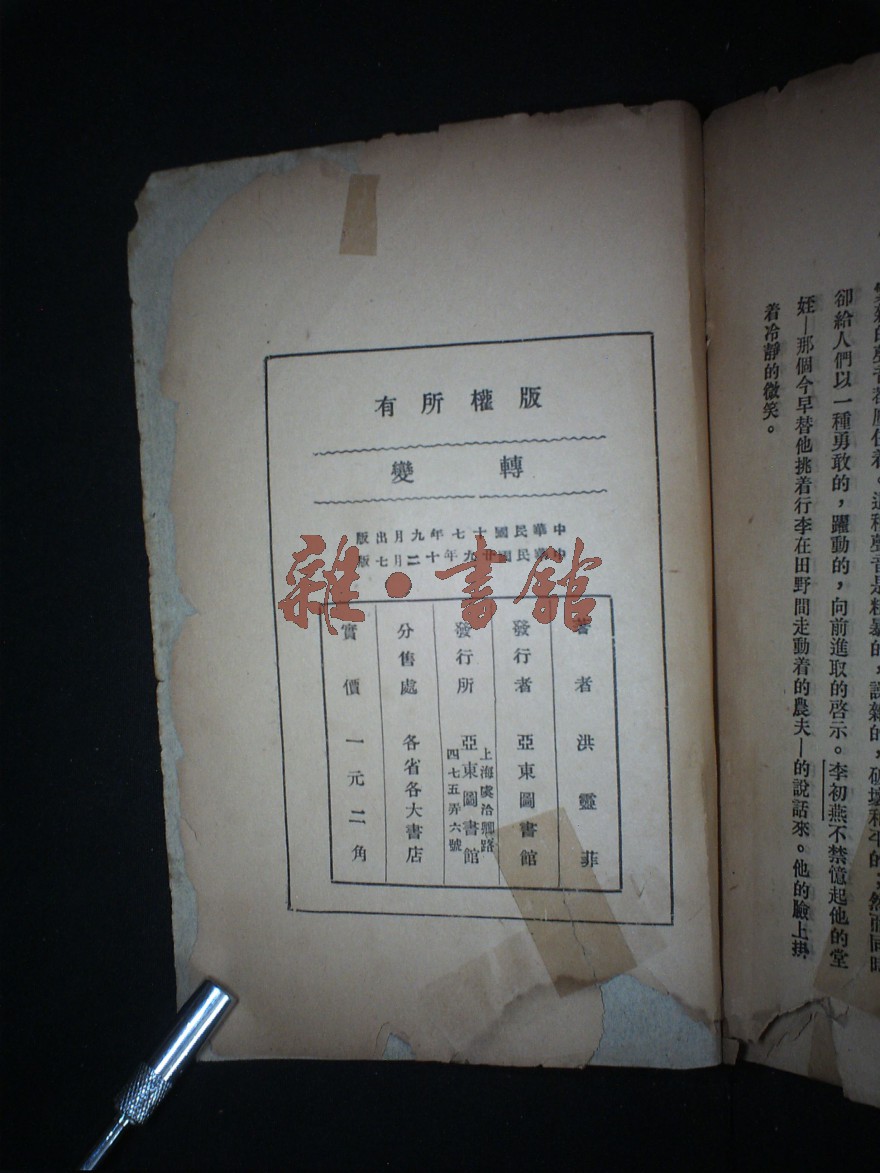 版權所有
轉變
中華民國十七年九月出版
中華民國廿九年十二月七版
著者 洪靈菲
發行者 亞東圖書館
發行所 亞東圖書館
上海虞洽卿路
四七五弄六號
分售處 各省各大書店
實價 一元二角
雜·書館
卻給人們以一種勇敢的，躍動的，向前進取的啓示。李初燕不禁憶起他的堂
姪—那個今早替他挑着行李在田野間走動着的農夫—的說話來。他的臉上掛
着冷靜的微笑。